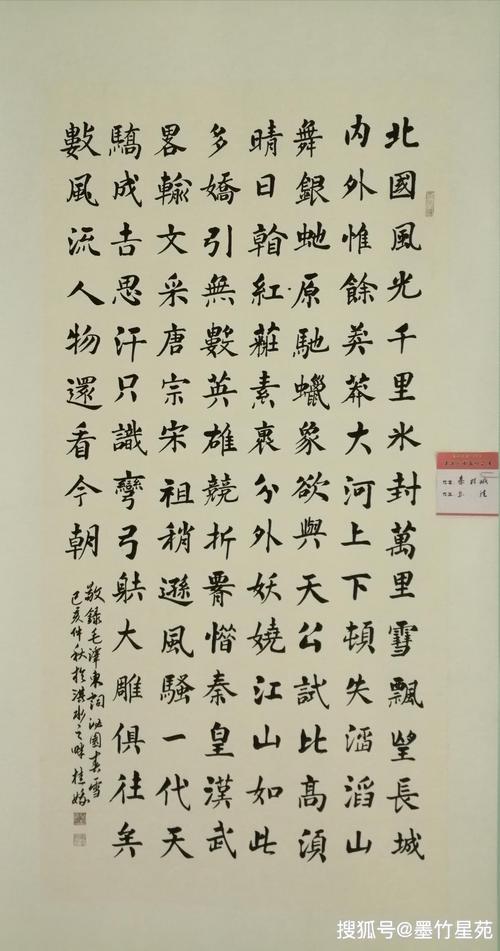 北國風光千里氷封萬里雪飄望長城
内外惟餘莽莽大河上下頓失滔滔山
舞銀虵原馳蠟象欲與天公試比高須
晴日看紅裝素裹分外妖嬈江山如此
多嬌引無數英雄競折腰惜秦皇漢武
畧輸文采唐宗宋祖稍遜風騷一代天
驕成吉思汗只識彎弓射大雕俱往矣
數風流人物還看今朝
敬錄毛澤東詞沁園春雪
己亥仲秋於淇水之畔桂
搜狐号@墨竹星苑